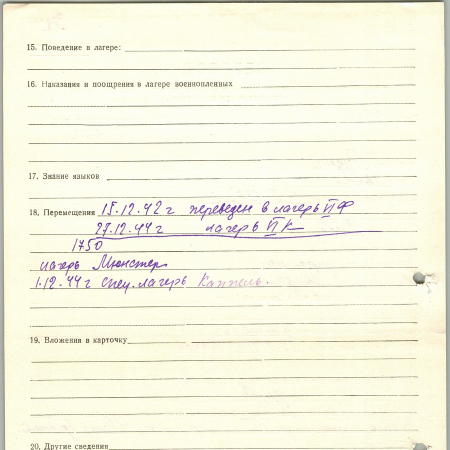 15. Поведение в лагере:
16. Наказания и поощрения в лагере военнопленных
17. Знание языков
18. Перемещения 15.12.42 г переведен в лагерь II Ф
27.12.44 г лагерь II К
1750
лагерь Мюнстер
1.12.44 г спец. лагерь Каппель.
19. Вложения в карточку
20. Другие сведения